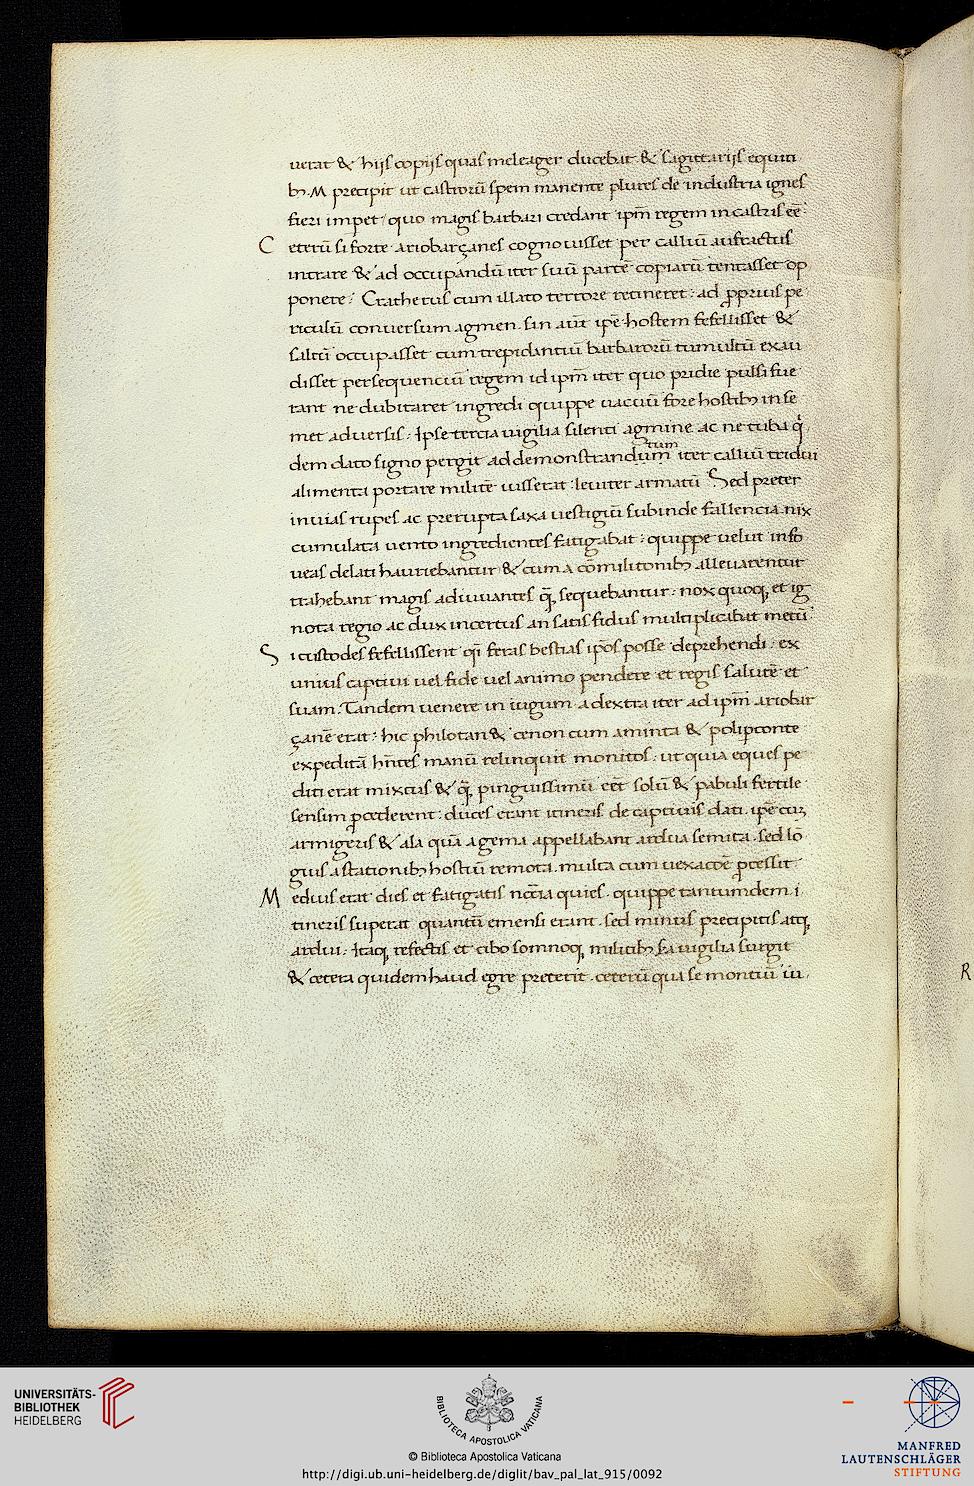 uerat & hijs copijs quas meleager ducebat & sagittarijs equiti
bꝫ. M precipit ut castrorū spem manente plures de industria ignes
fieri impet / quo magis barbari credant ipm̄ regem in castris eē:
C eterū si forte ariobarçanes cognouisset per calliū anfractus
intrare & ad occupandū iter suū partē copiarū temtasset op
ponere: Cratherus cum illato terrore retineret: ad ꝓprius pe
riculū conuersum agmen. sin aūt ipē hostem fefellisset &
saltū occupasset cum trepidantiū barbarorū tumultū exau
disset persequenciū regem id ipm̄ iter quo pridie pulsi fue
rant ne dubitaret ingredi quippe uacuū fore hostibꝫ in se
met aduersis: Ipse tercia uigilia silenti agmine ac ne tuba q̇
dem dato signo pergit ad demonstrandum iter calliū tridui
tum
alimenta portare militē iusserat: leuiter armatū Sed preter
inuias rupes ac prerupta saxa uestigiū subinde fallencia nix
cumulata uento ingredientes fatigabat: quippe uelut in fo
ueas delati hauriebantur & cum a cōmilitonibꝫ alleuarentur
trahebant magis adiuuantes q̄ sequebantur: nox quoqꝫ et ig
nota regio ac dux incertus an satis fidus multiplicabat metū:
S i custodes fefellissent qi feras bestias ipōs posse deprehendi: ex
unius captiui uel fide uel animo pendere et regis salutē et
suam. Tandem uenere in iugum a dextra iter ad ipm̄ ariobar
çanē erat: hic philotan & cenon cum aminta & poliperconte
expeditā hn̄tes manū relinquit monitos: ut quia eques pe
diti erat mixtus & q̄ pinguissimū eēt solū & pabuli fertile
sensim ꝓcederent: duces erant itineris de captiuis dati. ipē cuꝫ
armigeris & ala quā agema appellabant ardua semita. sed lō
gius a stationibꝫ hostiū remota. multa cum uexacōē ꝓcessit
M edius erat dies et fatigatis nc̄cia quies. quippe tantumdem i
tineris superat quantū emensi erant. sed minus precipitis atqꝫ
ardui: Itaqꝫ refectis et cibo somnoqꝫ militibꝫ sa uigilia surgit
& cetera quidem haud egre preterit. ceterū qua se montiū iu
R
UNIVERSITÄTS-
BIBLIOTHEK
HEIDELBERG
BIBLIOTECA APOSTOLICA VATICANA
© Biblioteca Apostolica Vaticana
http://digi.ub.uni-heidelberg.de/diglit/bav_pal_lat_915/0092
MANFRED
LAUTENSCHLÄGER
STIFTUNG